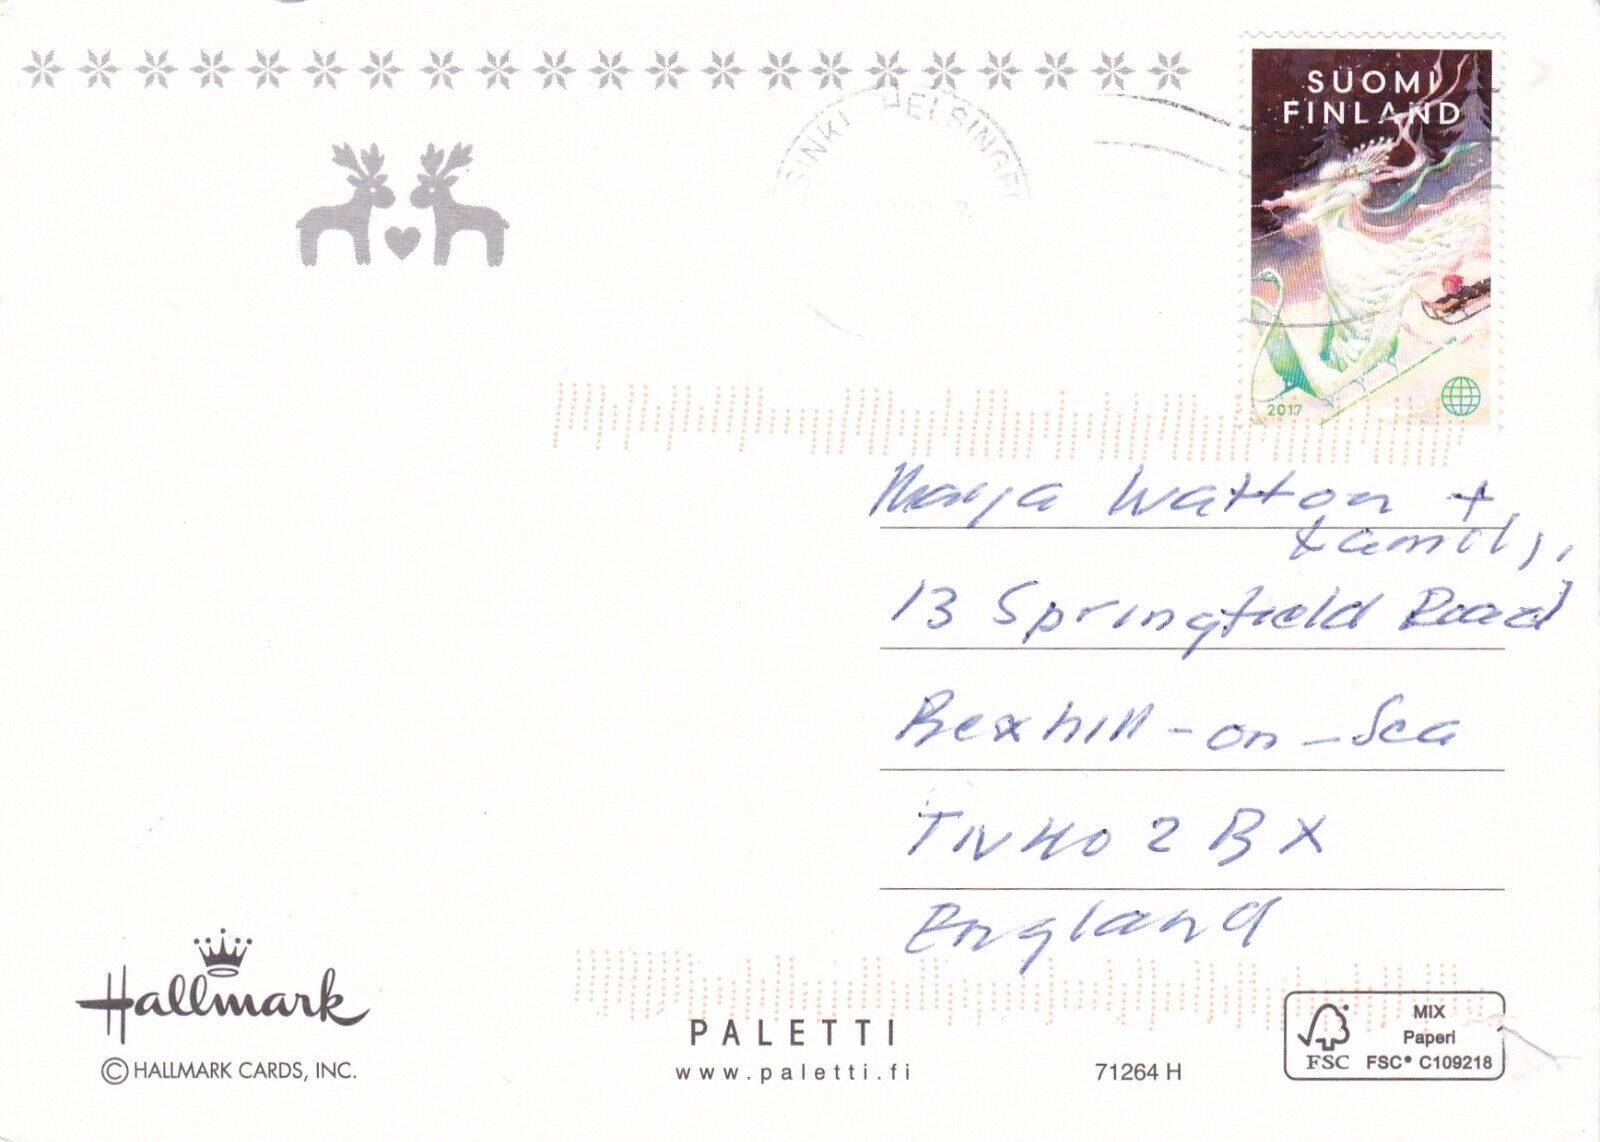 SUOMI
FINLAND
SINKI HELSINGF
2017
Marja Watton +
family,
13 Springfield Road
Bexhill-on-Sea
TN40 2BX
England
Hallmark
© HALLMARK CARDS, INC.
PALETTI
www.paletti.fi
71264 H
FSC
MIX
Paperi
FSC® C109218